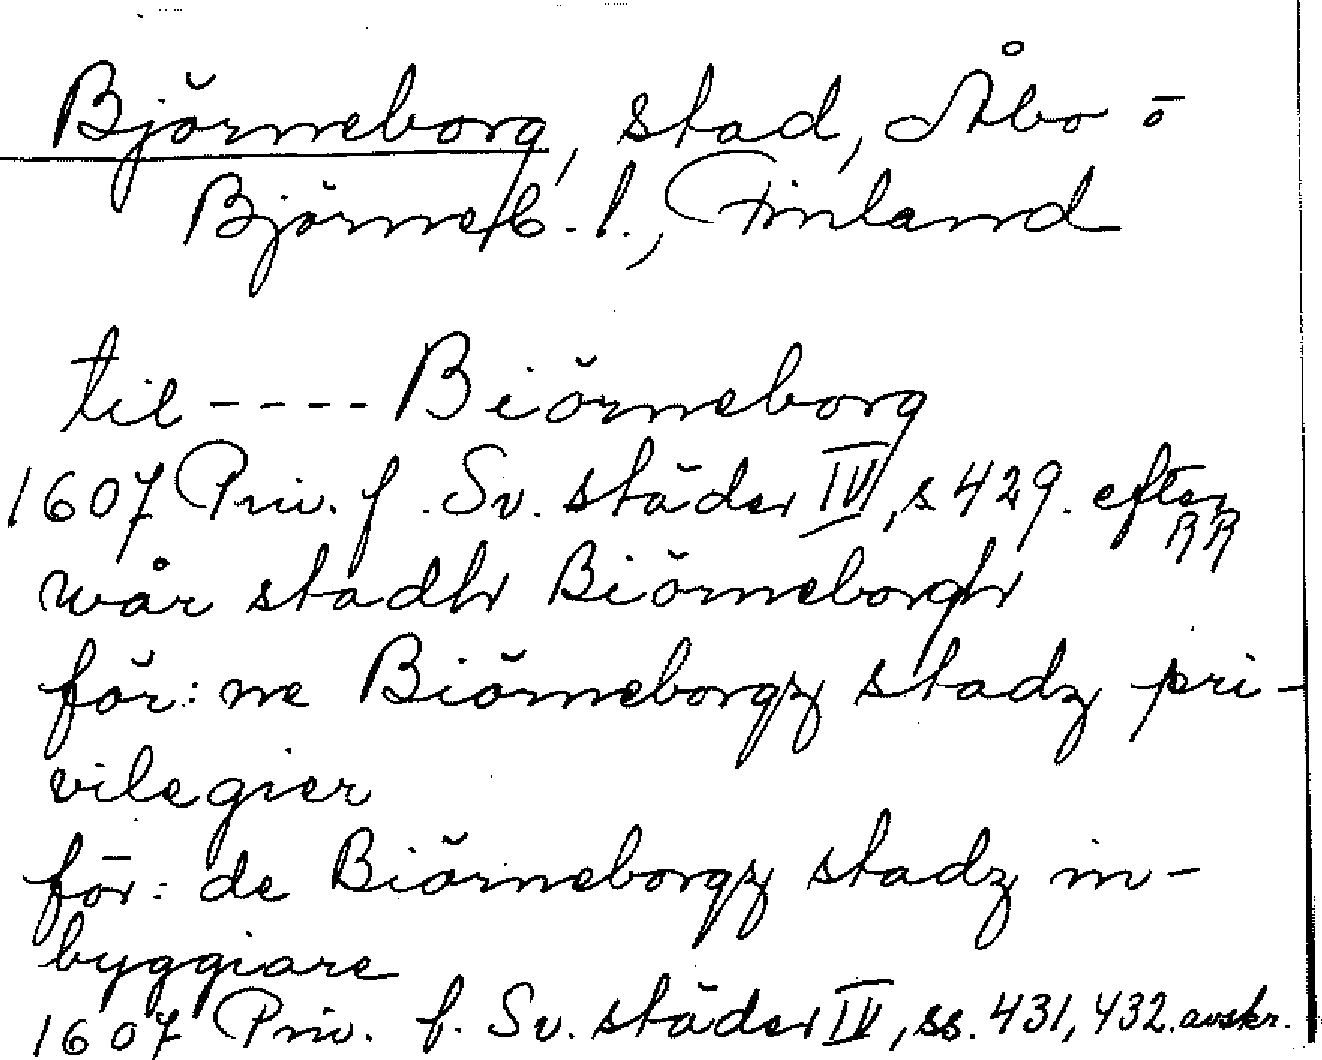 Björneborg, stad, Åbo o
Björneb. l., Finland
til ---- Biörneborg
1607 Priv. f. Sv. städer IV, s 429. efter
RR
wår stadh Biörneborgh
för:ne Biörneborgz stadz pri-
vilegier
för:de Biörneborgz stadz in-
byggiare
1607 Priv. f. Sv. städer IV, ss. 431, 432. avskr.